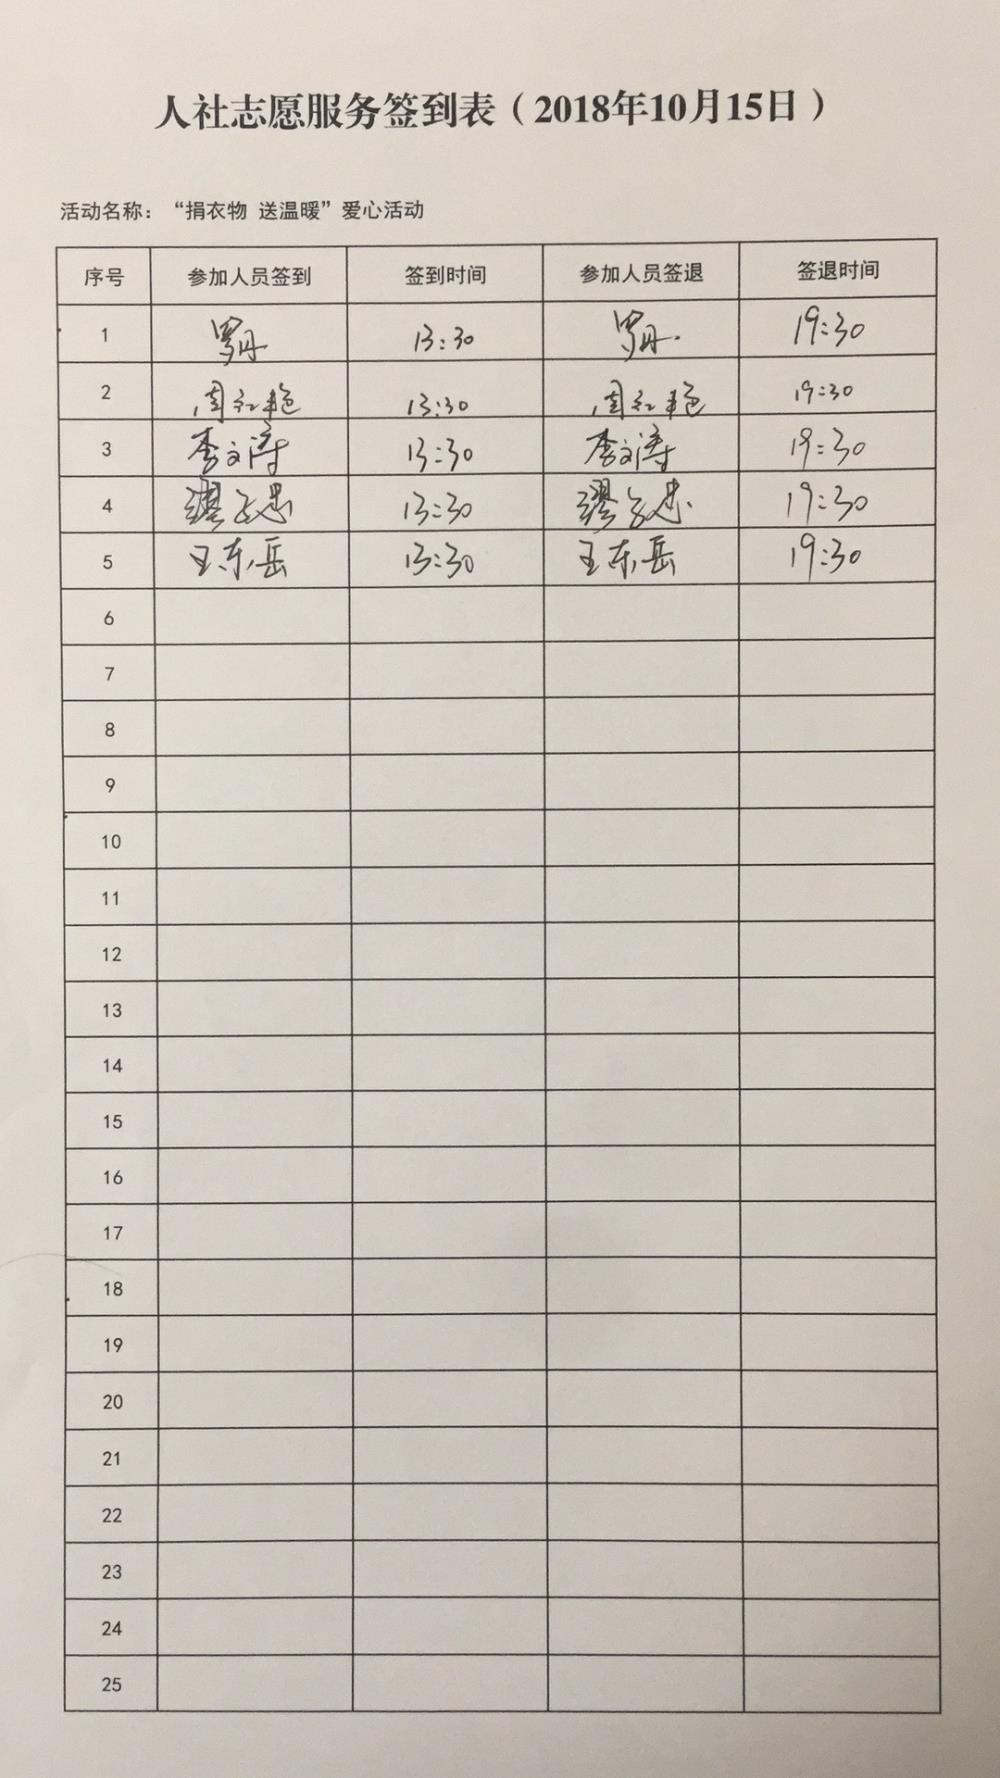 人社志愿服务签到表（2018年10月15日）
活动名称：“捐衣物 送温暖”爱心活动
序号 参加人员签到 签到时间 参加人员签退 签退时间
1 罗丹 13:30 罗丹 19:30
2 周红艳 13:30 周红艳 19:30
3 李文涛 13:30 李文涛 19:30
4 13:30 19:30
5 王东岳 13:30 王东岳 19:30
6
7
8
9
10
11
12
13
14
15
16
17
18
19
20
21
22
23
24
25